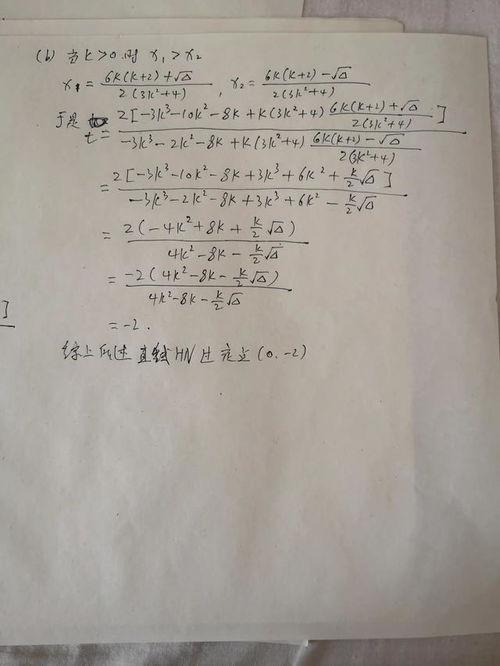 (b) 当K>0时 x₁>x₂
x₁ = 6K(K+2)+√Δ / 2(3K²+4) , x₂ = 6K(K+2)-√Δ / 2(3K²+4)
于是 t = 2[-3K³-10K²-8K+K(3K²+4) 6K(K+2)+√Δ / 2(3K²+4)] / -3K³-2K²-8K+K(3K²+4) 6K(K+2)-√Δ / 2(3K²+4)
= 2[-3K³-10K²-8K+3K³+6K²+K/2√Δ] / -3K³-2K²-8K+3K³+6K²-K/2√Δ
= 2(-4K²+8K+K/2√Δ) / 4K²-8K-K/2√Δ
= -2(4K²-8K-K/2√Δ) / 4K²-8K-K/2√Δ
= -2.
综上所述 直线HN过定点(0.-2)
]